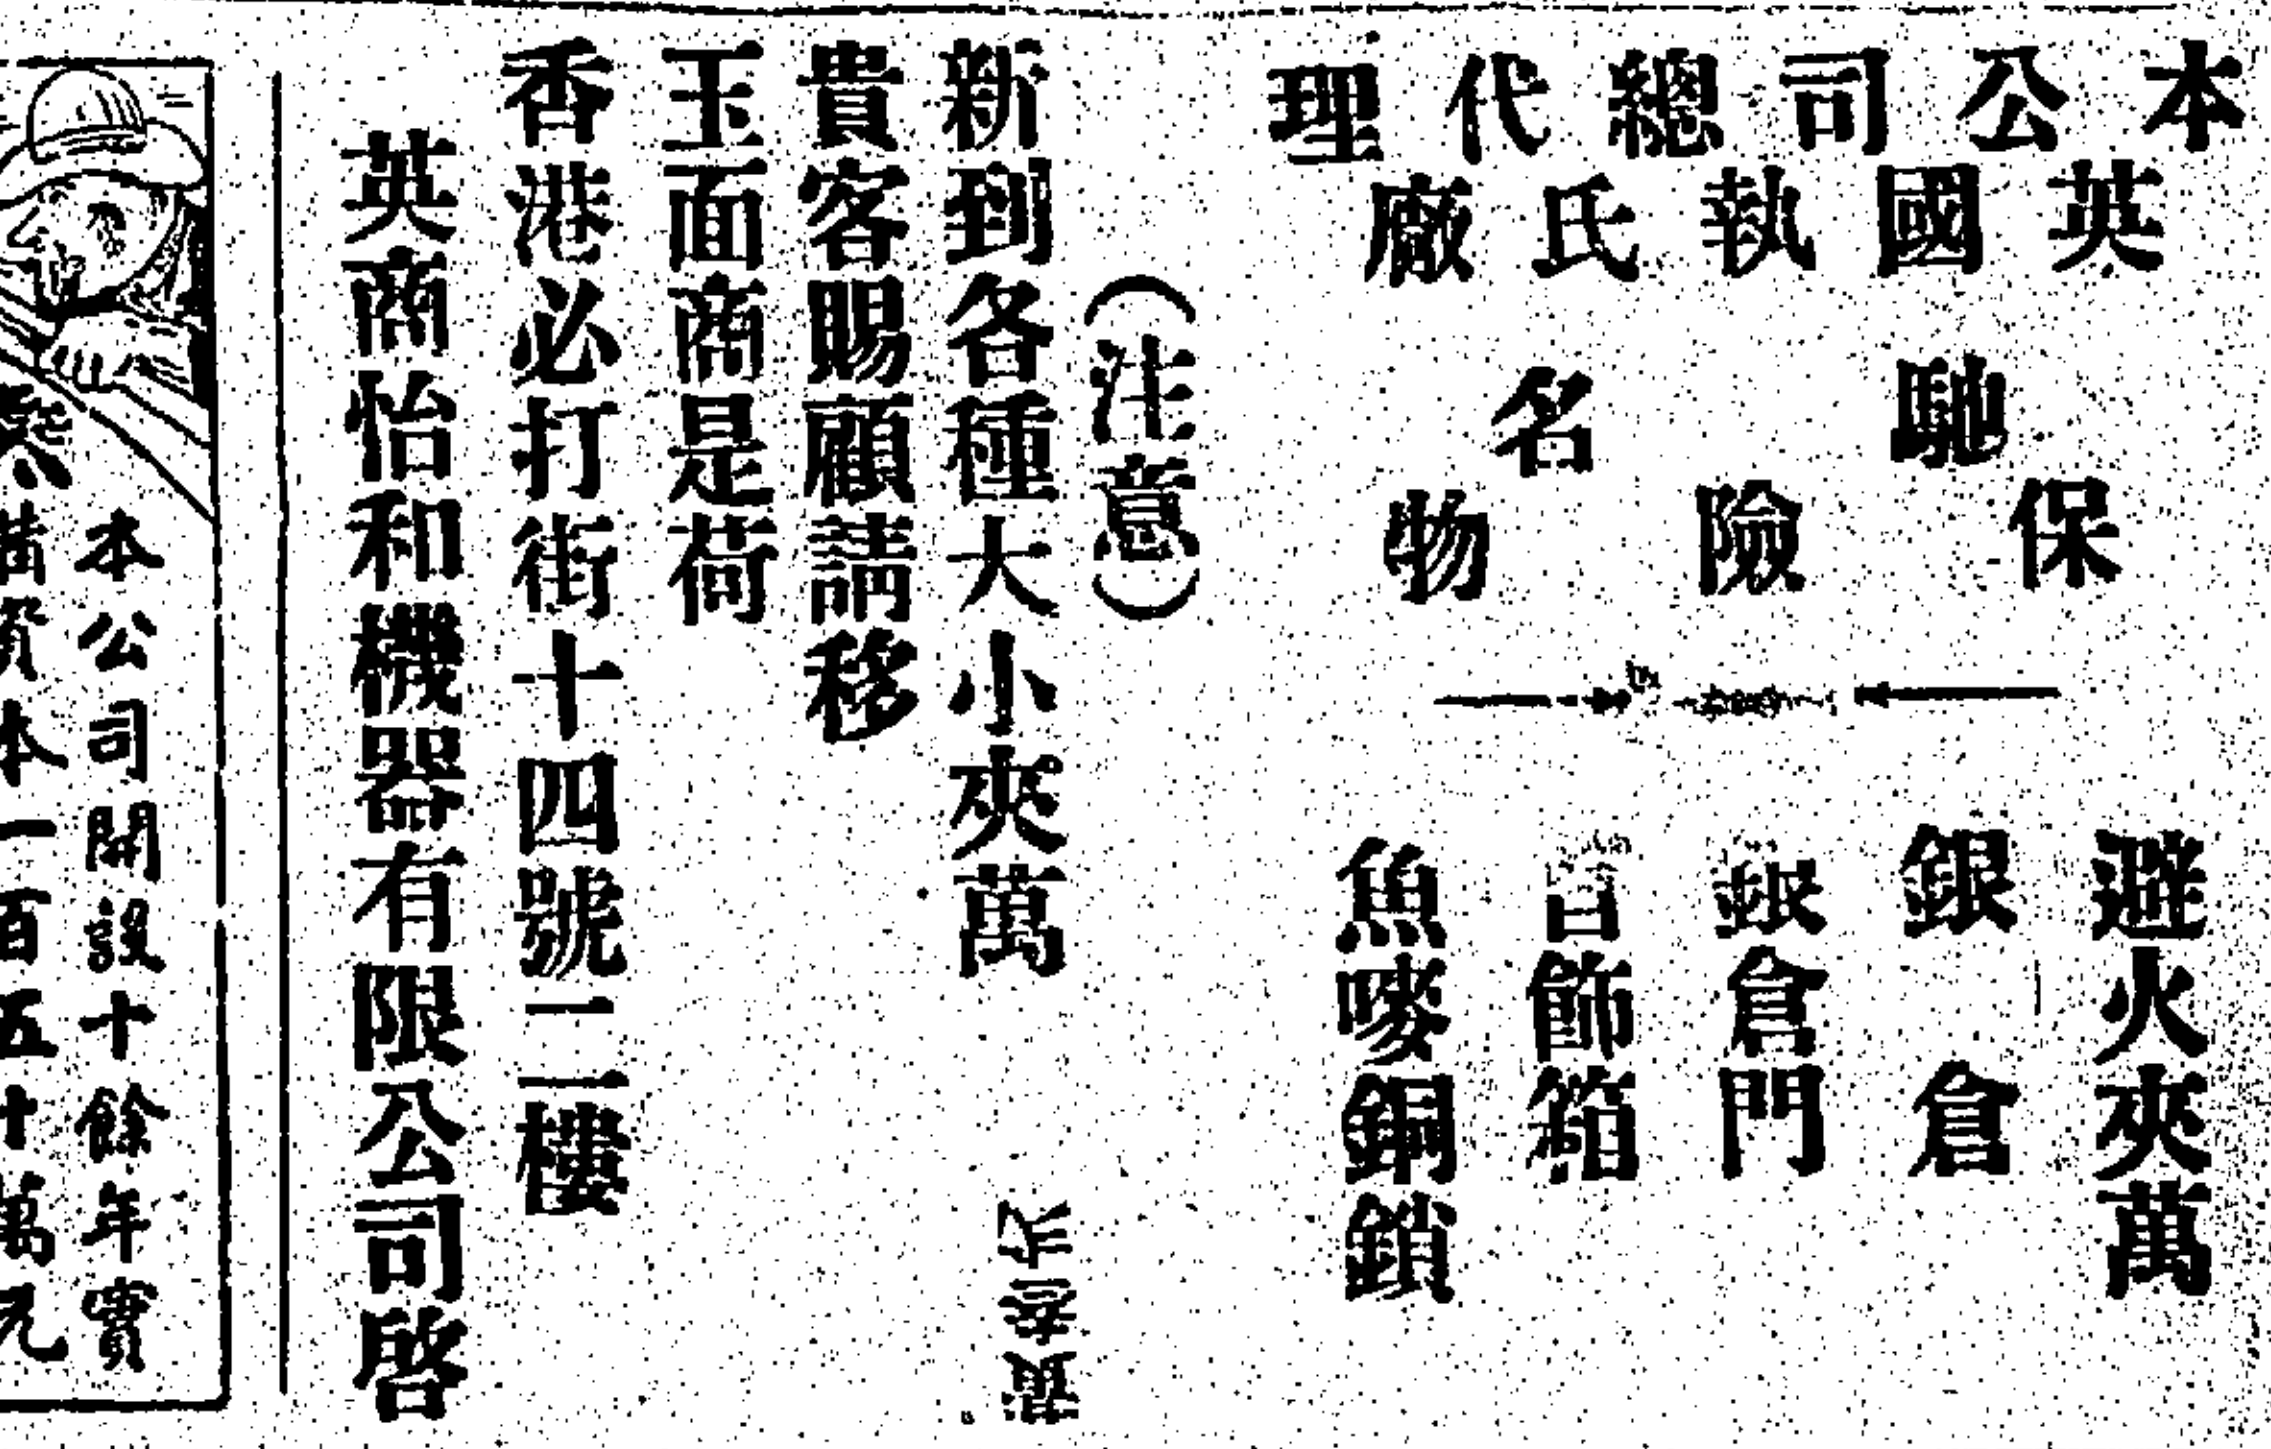 本公司總代理
英國執氏廠
馳名
保險物
避火夾萬
銀倉
銀倉門
首飾箱
魚嘜銅鎖
（注意）
新到各種大小夾萬
貴客賜顧請移
玉面商是荷
香港必打街十四號二樓
英商怡和機器有限公司啓
本公司開設十餘年實
資本一百五十萬元